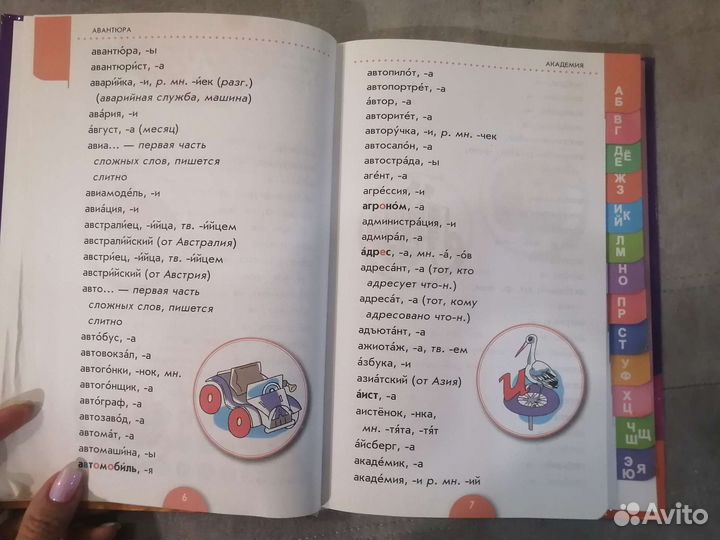 АВАНТЮРА
авантю́ра, -ы
авантюри́ст, -а
авари́йка, -и, р. мн. -и́ек (разг.)
(аварийная служба, машина)
ава́рия, -и
а́вгуст, -а (месяц)
авиа... — первая часть
сложных слов, пишется
слитно
авиамоде́ль, -и
авиа́ция, -и
австрали́ец, -и́йца, тв. -и́йцем
австрали́йский (от Австралия)
австри́ец, -и́йца, тв. -и́йцем
австри́йский (от Австрия)
авто... — первая часть
сложных слов, пишется
слитно
авто́бус, -а
автовокза́л, -а
автого́нки, -нок, мн.
автого́нщик, -а
авто́граф, -а
автозаво́д, -а
автома́т, -а
автомаши́на, -ы
автомоби́ль, -я
6
АКАДЕМИЯ
автопило́т, -а
автопортре́т, -а
а́втор, -а
авторите́т, -а
авторучка, -и, р. мн. -чек
автосало́н, -а
автостра́да, -ы
аге́нт, -а
агре́ссия, -и
агроно́м, -а
администра́ция, -и
адмира́л, -а
а́дрес, -а, мн. -а́, -о́в
адреса́нт, -а (тот, кто
адресует что-н.)
адреса́т, -а (тот, кому
адресовано что-н.)
адъюта́нт, -а
ажиота́ж, -а, тв. -ем
а́збука, -и
азиа́тский (от Азия)
а́ист, -а
аистёнок, -нка,
мн. -тя́та, -тя́т
а́йсберг, -а
акаде́мик, -а
акаде́мия, -и р. мн. -ий
И
7
А
Б
В
Г
Д
Е Ё
Ж
З
И
Й К
Л
М
Н
О
П
Р
С
Т
У
Ф
Х
Ц
Ч
Ш Щ
Э
Ю Я
Avito